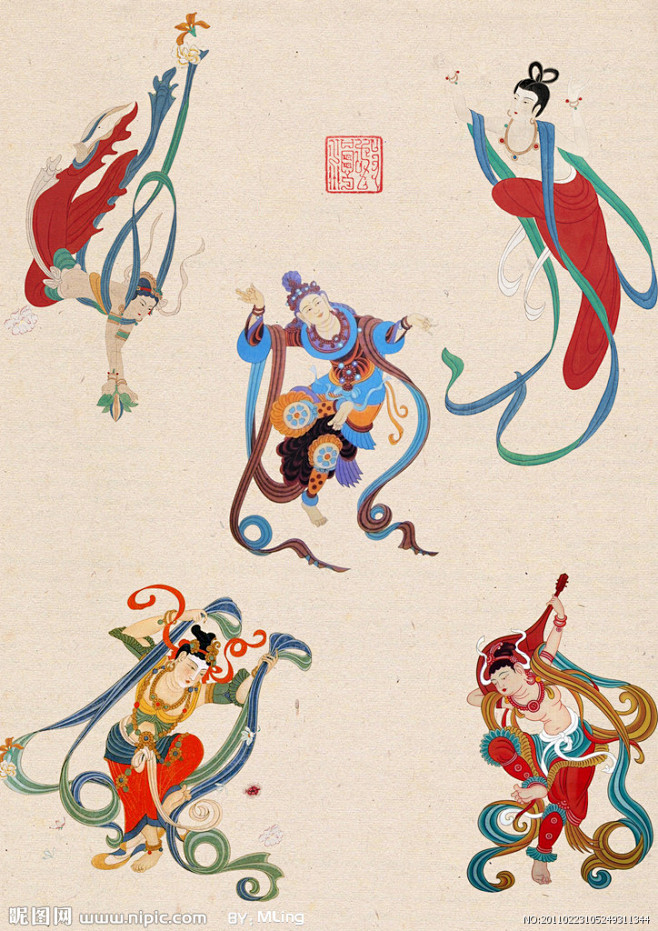 昵图网 www.nipic.com BY: MLing NO:20110223105249311344